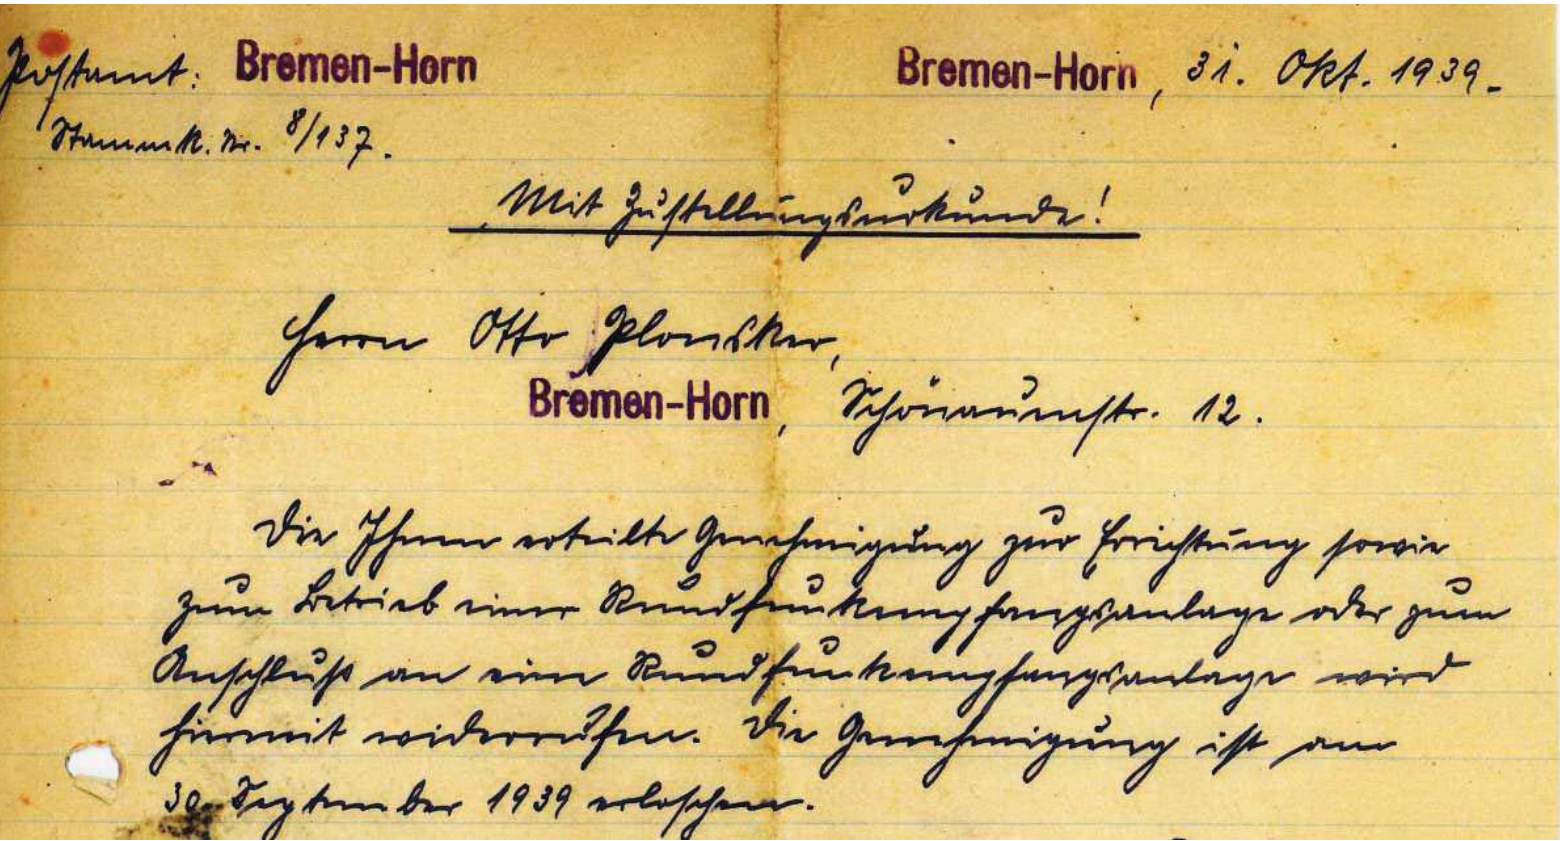 Postamt: Bremen-Horn Bremen-Horn, 31. Okt. 1939.
Stammk. Nr. 8/137.
Mit Zustellungsurkunde!
Herrn Otto Plonsker,
Bremen-Horn, Schönaumstr. 12.
Die Ihnen erteilte Genehmigung zur Errichtung sowie
zum Betrieb einer Rundfunkempfangsanlage oder zum
Anschluß an eine Rundfunkempfangsanlage wird
hiermit widerrufen. Die Genehmigung ist am
30. September 1939 erloschen.